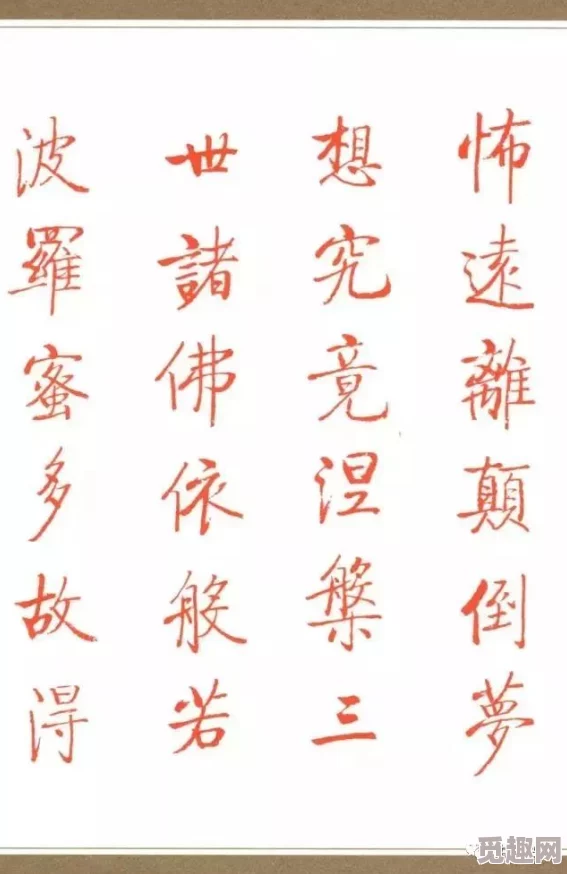 怖遠離顛倒夢
想究竟涅槃三
世諸佛依般若
波羅蜜多故得
觅趣网